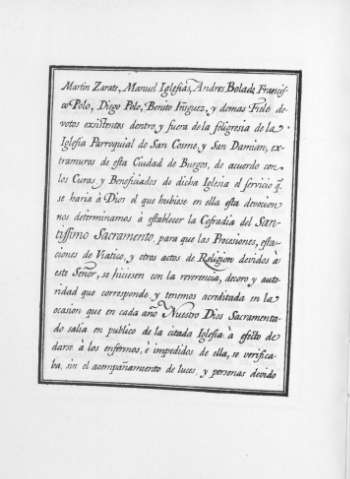 Martin Zarate, Manuel Iglesias, Andres Bolade, Francis-
co Polo, Diego Polo, Benito Iñiguez, y demas Fiele de-
votos existentes dentro y fuera de la feligresia de la
Iglesia Parroquial de San Cosme y San Damian, ex-
tramuros de esta Ciudad de Burgos, de acuerdo con
los Curas y Beneficiados de dicha Iglesia el servicio q.
se haria à Dios el que hubiese en ella esta devocion
nos determinamos à establecer la Cofradia del San-
tissimo Sacramento, para que las Procesiones, esta-
ciones de Viatico, y otros actos de Religion devidos à
este Señor, se hiciesen con la reverencia, decoro y auto-
ridad que corresponde y tenemos acreditada en la
ocasion que en cada año Nuestro Dios Sacramenta-
do salia en publico de la citada Iglesia à efecto de
darse à los enfermos, è impedidos de ella, se verifica-
ba, sin el acompañamiento de luces, y personas devido